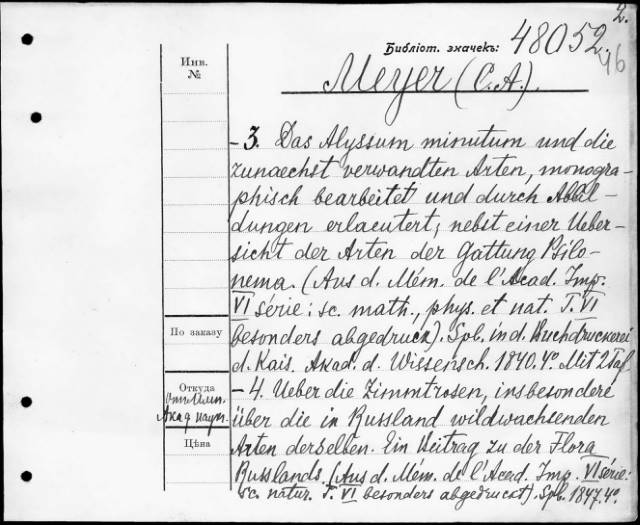 2.
Библіот. значекъ: 48052.
46
Meyer (C.A.).
Инв.
№
- 3. Das Alyssum minutum und die
zunaechst verwandten Arten, monogra-
phisch bearbeitet und durch Abbil-
dungen erlaeutert, nebst einer Ueber-
sicht der Arten der Gattung Psilo-
nema. (Aus d. Mém. de l'Acad. Imp.
VI série: sc. math., phys. et nat. T. VI
besonders abgedruckt). Spb. in d. Buchdruckerei
d. Kais. Akad. d. Wissensch. 1840. 4º. Mit 2 Taf.
- 4. Ueber die Zimmtrosen, insbesondere
über die in Russland wildwachsenden
Arten derselben. Ein Beitrag zu der Flora
Russlands. (Aus d. Mém. de l'Acad. Imp. VI série:
sc. natur. T. VI besonders abgedruckt). Spb. 1847. 4º.
По заказу
Откуда
Акад наук.
Цѣна